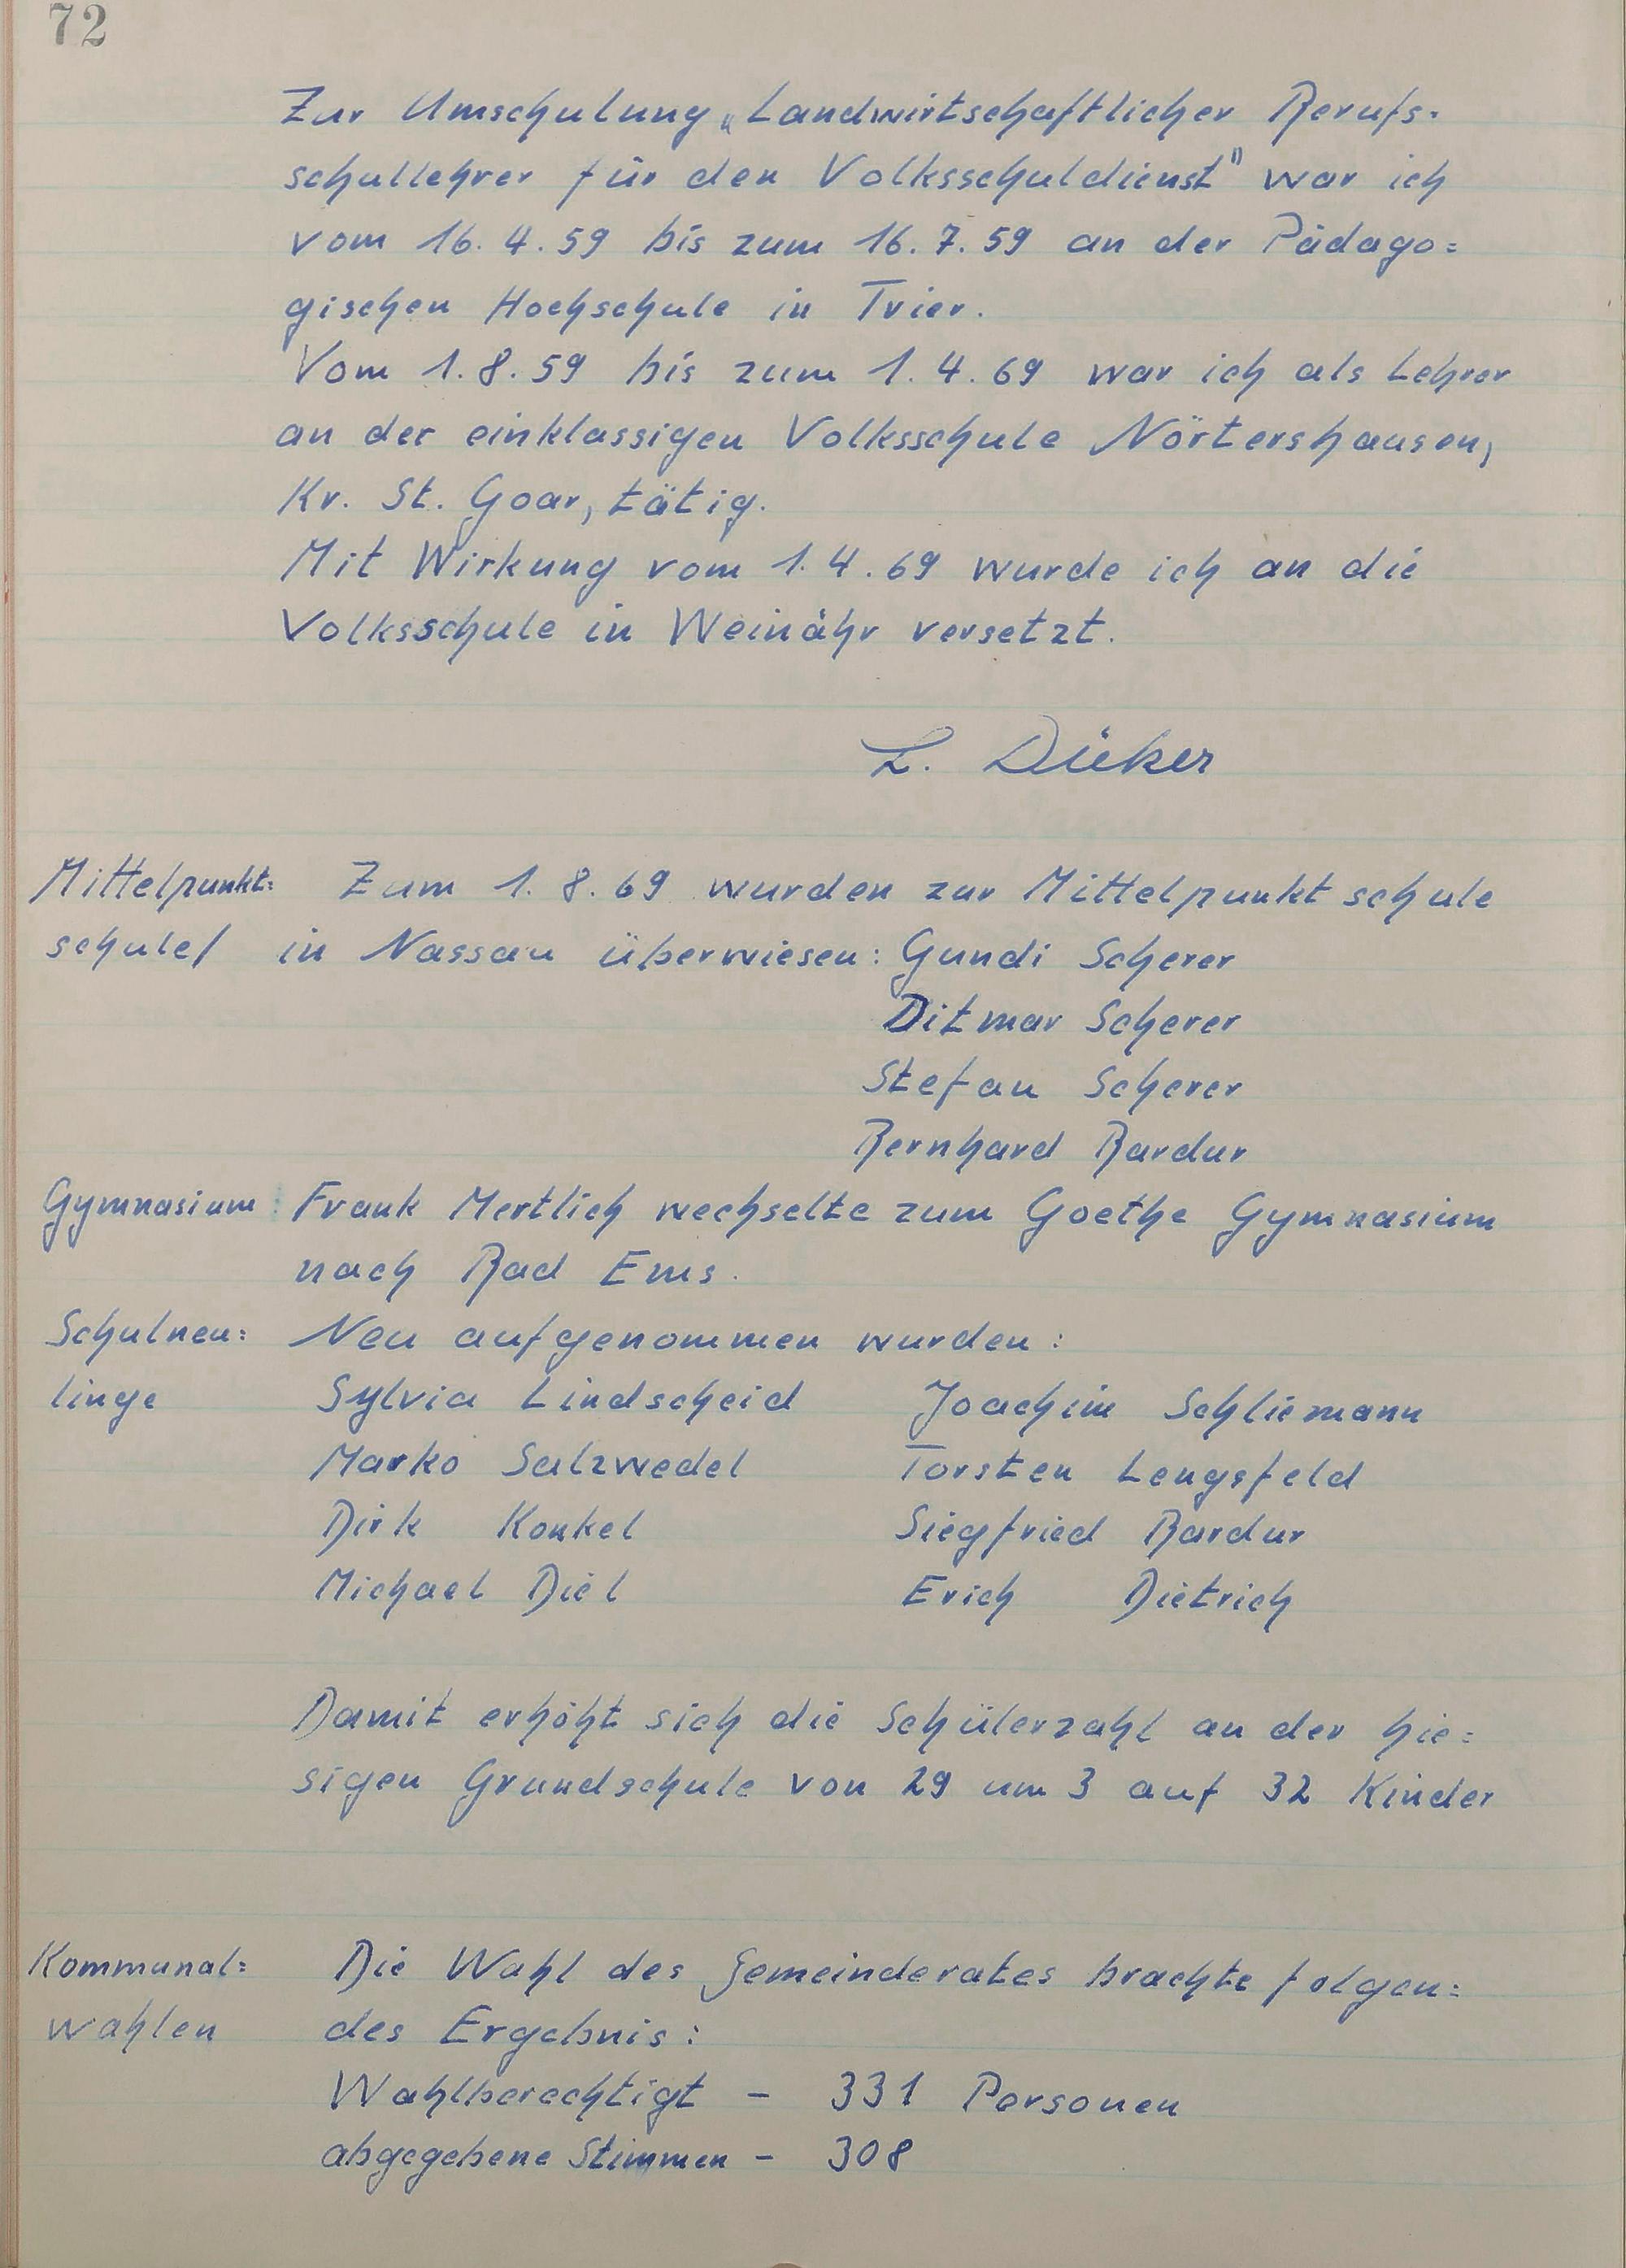 72
Zur Umschulung „Landwirtschaftlicher Berufs-
schullehrer für den Volksschuldienst" war ich
vom 16.4.59 bis zum 16.7.59 an der Pädago=
gischen Hochschule in Trier.
Vom 1.8.59 bis zum 1.4.69 war ich als Lehrer
an der einklassigen Volksschule Nörtershausen,
Kr. St. Goar, tätig.
Mit Wirkung vom 1.4.69 wurde ich an die
Volksschule in Weinähr versetzt.
L. Düker
Mittelpunkt= Zum 1.8.69 wurden zur Mittelpunktschule
schule/ in Nassau überwiesen: Gundi Scherer
Ditmar Scherer
Stefan Scherer
Bernhard Bardur
Gymnasium: Frank Mertlich wechselte zum Goethe Gymnasium
nach Bad Ems.
Schulneu= Neu aufgenommen wurden:
linge Sylvia Lindscheid Joachim Schliemann
Marko Salzwedel Torsten Lengsfeld
Dirk Konkel Siegfried Bardur
Michael Diel Erich Dietrich
Damit erhöht sich die Schülerzahl an der hie=
sigen Grundschule von 29 um 3 auf 32 Kinder
Kommunal= Die Wahl des Gemeinderates brachte folgen=
wahlen des Ergebnis:
Wahlberechtigt - 331 Personen
abgegebene Stimmen - 308